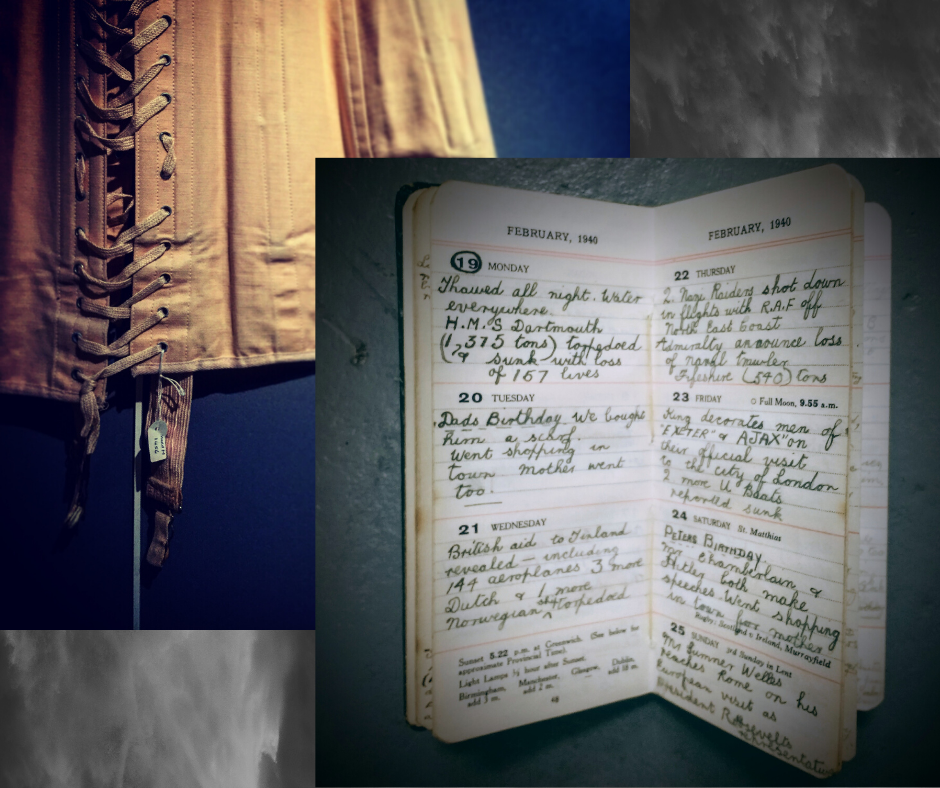 FEBRUARY, 1940
19 MONDAY
Thawed all night. Water
everywhere.
H.M.S Dartmouth
(1,375 tons) torpedoed
& sunk with loss
of 157 lives
20 TUESDAY
Dads Birthday we bought
him a scarf.
Went shopping in
town mother went
too.
21 WEDNESDAY
British aid to Finland
revealed - including
144 aeroplanes 3 more
Dutch & 1 more
Norwegian ship torpedoed
Sunset 5.22 p.m. at Greenwich. (See below for
approximate Provincial Time).
Light Lamps ½ hour after Sunset.
Birmingham, Manchester, Glasgow, Dublin,
add 3 m. add 2 m. add 18 m.
FEBRUARY, 1940
22 THURSDAY
2. Nazi Raiders shot down
in flights with R.A.F off
North East Coast
Admiralty announce loss
of naval trawler
Fifeshire (540) tons
23 FRIDAY ○ Full Moon, 9.55 a.m.
King decorates men of
"EXETER" & AJAX" on
their official visit
to the city of London
2 more U Boats
reported sunk
24 SATURDAY St. Matthias
PETERS BIRTHDAY
Mr Chamberlain &
Hitler both make
speeches. Went shopping
in town for mother
Rugby: Scotland v Ireland, Murrayfield
25 SUNDAY 3rd Sunday in Lent
Mr Sumner Welles
reaches Rome on his
European visit as
President Roosevelts
representative